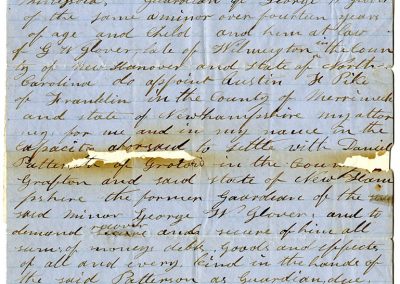 Guardian of George H. Glover
of the same a minor over fourteen years
of age and Child and heir at law
of G H Glover, late of Wilmington in the Coun
ty of New Hanover and State of North
Carolina do appoint Austin F Pike
of Franklin in the County of Merrimack
and state of New Hampshire my attor
ney for me and in my name in the
capacity aforesaid to settle with Daniel
Patterson of in the Coun
Grafton and said state of New Ham
pshire the former Guardian of the
said Minor George H Glover, and to
demand recover and secure of him all
sums of moneys debts, goods and effects
of all and every kind in the hands of
the said Patterson as Guardian, due,